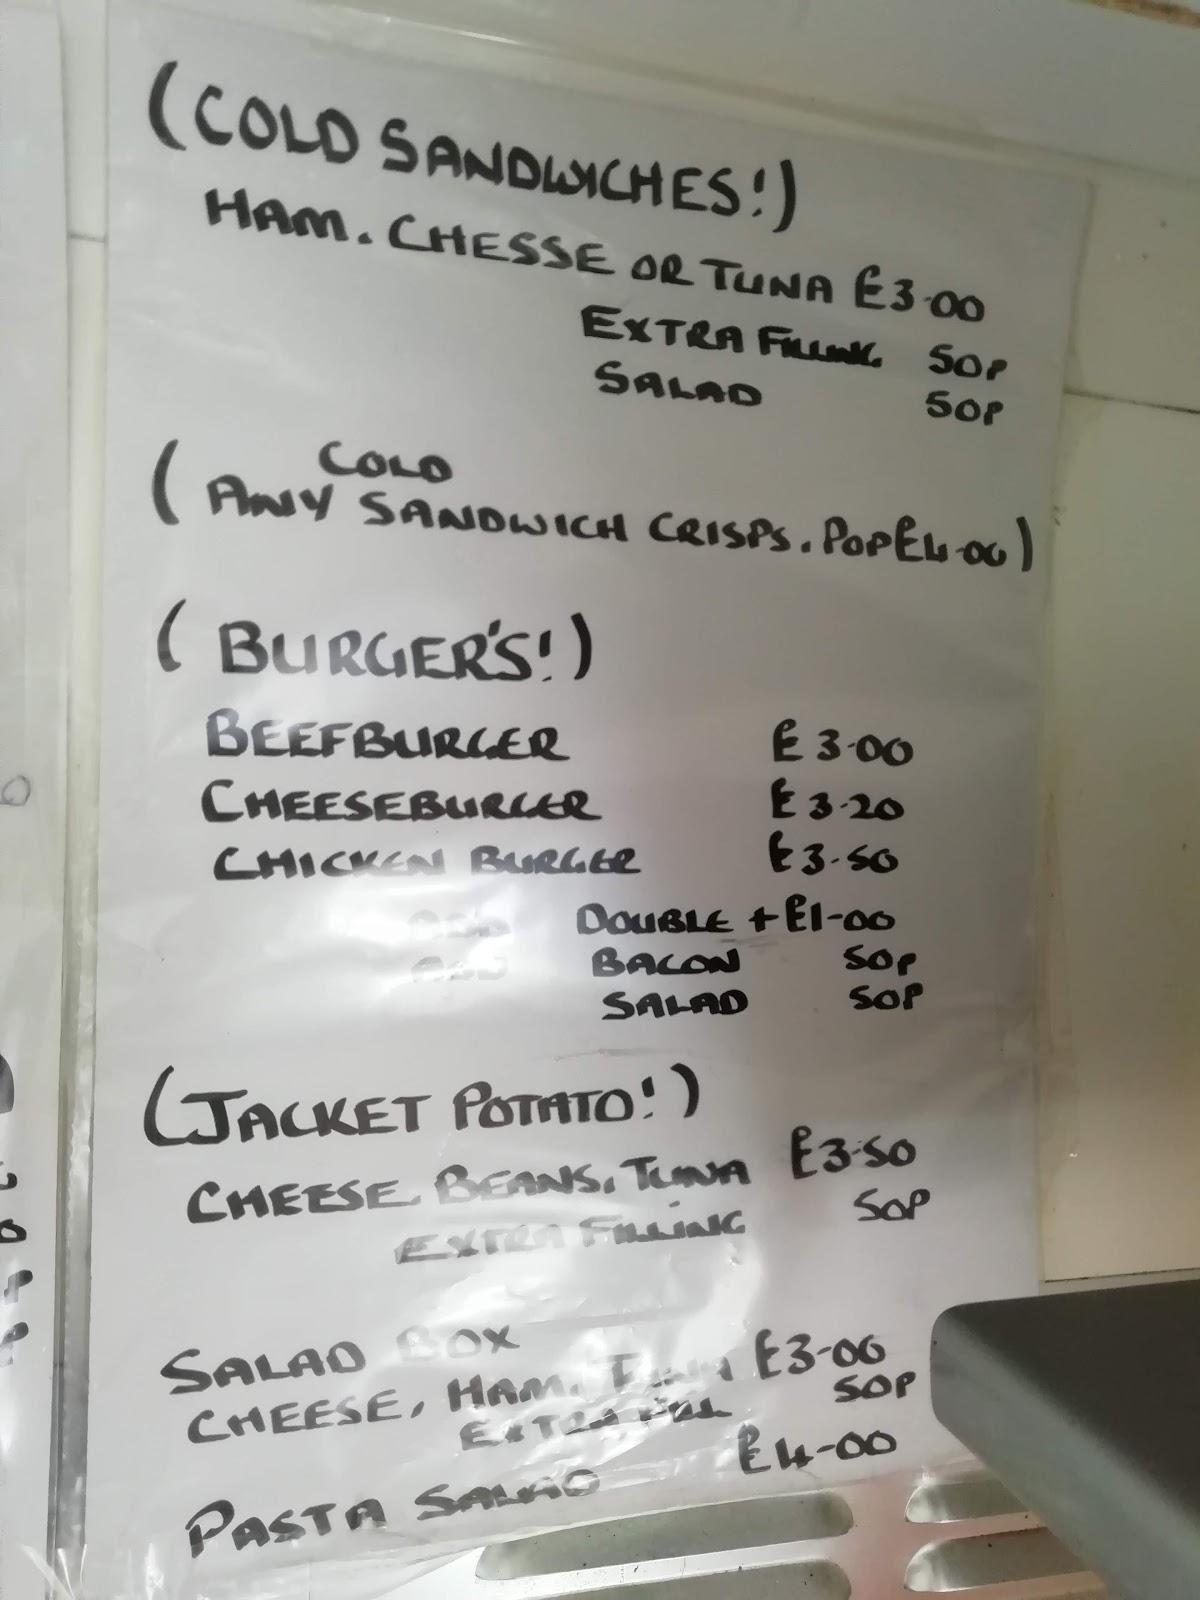 (COLD SANDWICHES!)
HAM. CHESSE OR TUNA £3.00
EXTRA FILLING 50P
SALAD 50P
COLD
(ANY SANDWICH CRISPS. POP £4-00)
(BURGER'S!)
BEEFBURGER £3.00
CHEESEBURGER £3.20
CHICKEN BURGER £3.50
ADD DOUBLE + £1-00
ADD BACON 50P
SALAD 50P
(JACKET POTATO!)
CHEESE. BEANS. TUNA £3.50
EXTRA FILLING 50P
SALAD BOX
CHEESE, HAM. TUNA £3-00
EXTRA FILL 50P
PASTA SALAD £4-00